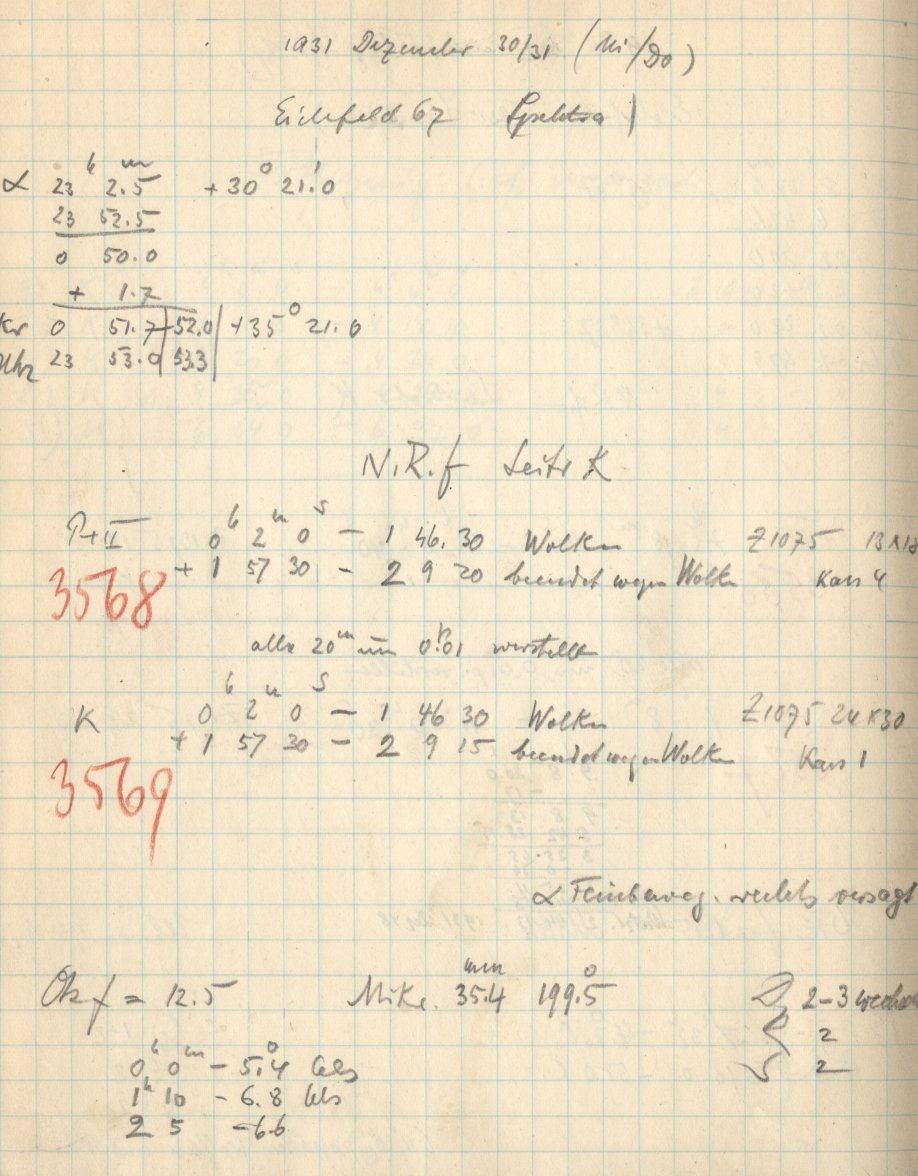 1931 Dezember 30/31 (Mi/Do)
Eichfeld 67 Spektra
α 23ʰ 2.5ᵐ +30° 21.'0
23 52.5
0 50.0
+ 1.7
Kr 0 51.7 52.0 +35° 21.6
Uhr 23 53.0 53.3
N.R.f Seite K
P+II 0ʰ 2ᵐ 0ˢ – 1 46.30 Wolken Z1075 13x18
3568 + 1 57 30 – 2 9 20 beendet wegen Wolken Kass 4
alle 20ᵐ um 0.01 verstellen
K 0ʰ 2ᵐ 0ˢ – 1 46 30 Wolken Z1075 24x30
+ 1 57 30 – 2 9 15 beendet wegen Wolken Kass 1
3569
α Feinbeweg. rechts versagt
Ok f = 12.5 Mikr. 35.4ᵐᵐ 199.5°
2-3 wechselnd
2
2
0ʰ 0ᵐ – 5.4°
1ʰ 10 – 6.8
2 5 – 6.6